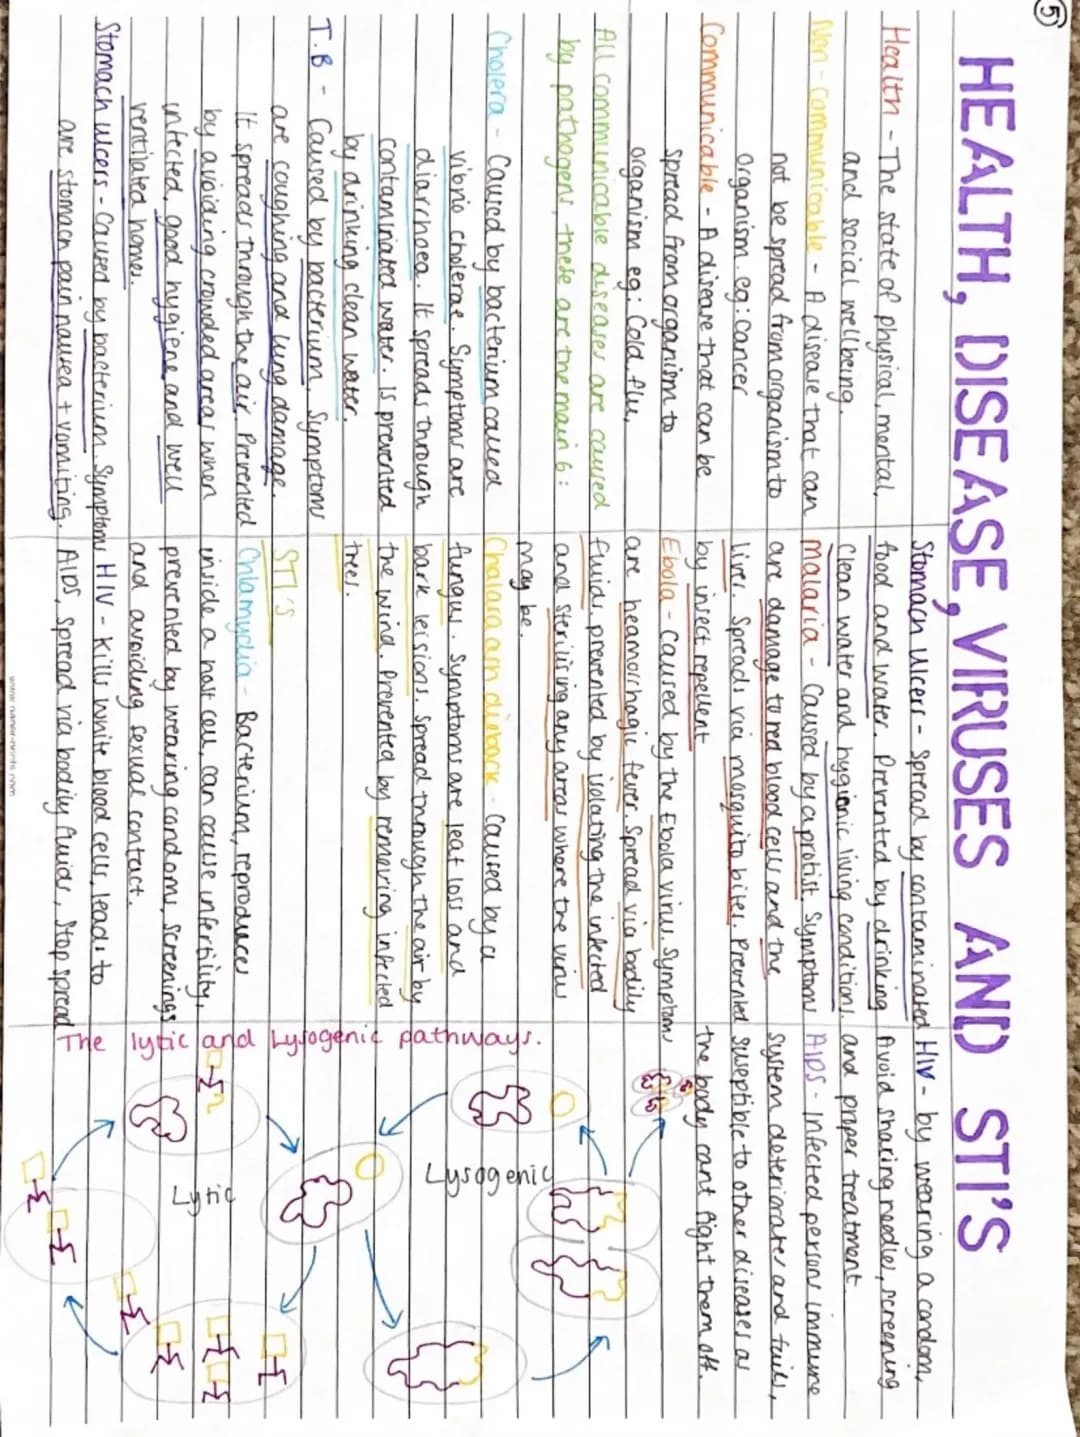 5
HEALTH, DISEASE, VIRUSES AND STI'S
Health - The state of physical, mental,
and social wellbeing.
Non-communicable - A disease that can
not be spread from organism to
organism. eg: Cancer
Communicable - A disease that can be
spread from organism to
organism eg: Cold, flu,
All communicable diseases are caused
by pathogens, these are the main 6:
Cholera - Caused by bacterium called
vibrio cholerae. Symptoms are
diarrhoea. It spreads through
contaminated water. Is prevented
by drinking clean water.
T.B - Caused by bacterium. Symptoms
are coughing and lung damage.
It spreads through the air. Prevented
by avoiding crowded areas when
infected, good hygiene and well
ventilated homes.
Stomach ulcers - Caused by bacterium. Symptoms
are stomach pain nausea + vomiting.
Stomach Ulcers - Spread by contaminated
food and water. Prevented by drinking
clean water and hygienic living conditions.
Malaria - Caused by a protist. Symptoms
are damage to red blood cells and the
liver. Spreads via mosquito bites. Prevented
by insect repellent
Ebola - caused by the Ebola virus. Symptoms
are heamorrhagic fever. Spread via bodily
fluids, prevented by isolating the infected
and sterilising any areas where the virus
may be.
Chalara ash dieback - Caused by a
fungus. Symptoms are leaf loss and
bark leisions. Spread through the air by
the wind. Prevented by removing infected
trees.
STI's
Chlamydia - Bacterium, reproduces
inside a host cell, can cause infertility,
prevented by wearing condoms, screenings
and avoiding sexual contact.
HIV - Kills white blood cells, leads to
AIDS, spread via bodily fluids, Stop spread
HIV - by wearing a condom,
Avoid sharing needles, screening
and proper treatment.
AIDS - Infected persons immune
system deteriorates and fails,
suseptible to other diseases as
the body cant fight them off.
Lysogenic
Lytic
The lytic and Lysogenic pathways.